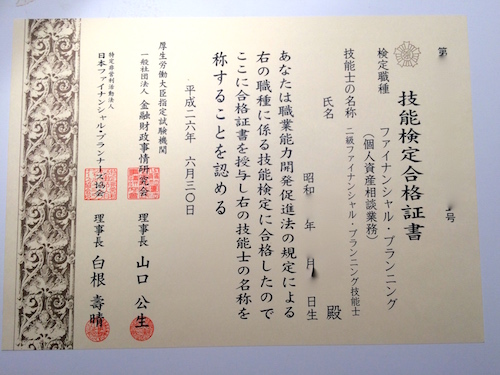 第 号
技能検定合格証書
検定職種 ファイナンシャル・プランニング
（個人資産相談業務）
技能士の名称 二級ファイナンシャル・プランニング技能士
氏名 殿
昭和 年 月 日生
あなたは職業能力開発促進法の規定による
右の職種に係る技能検定に合格したので
ここに合格証書を授与し右の技能士の名称を
称することを認める
平成二六年 六月三〇日
厚生労働大臣指定試験機関
一般社団法人 金融財政事情研究会 理事長 山口公生
特定非営利活動法人
日本ファイナンシャル・プランナーズ協会 理事長 白根壽晴